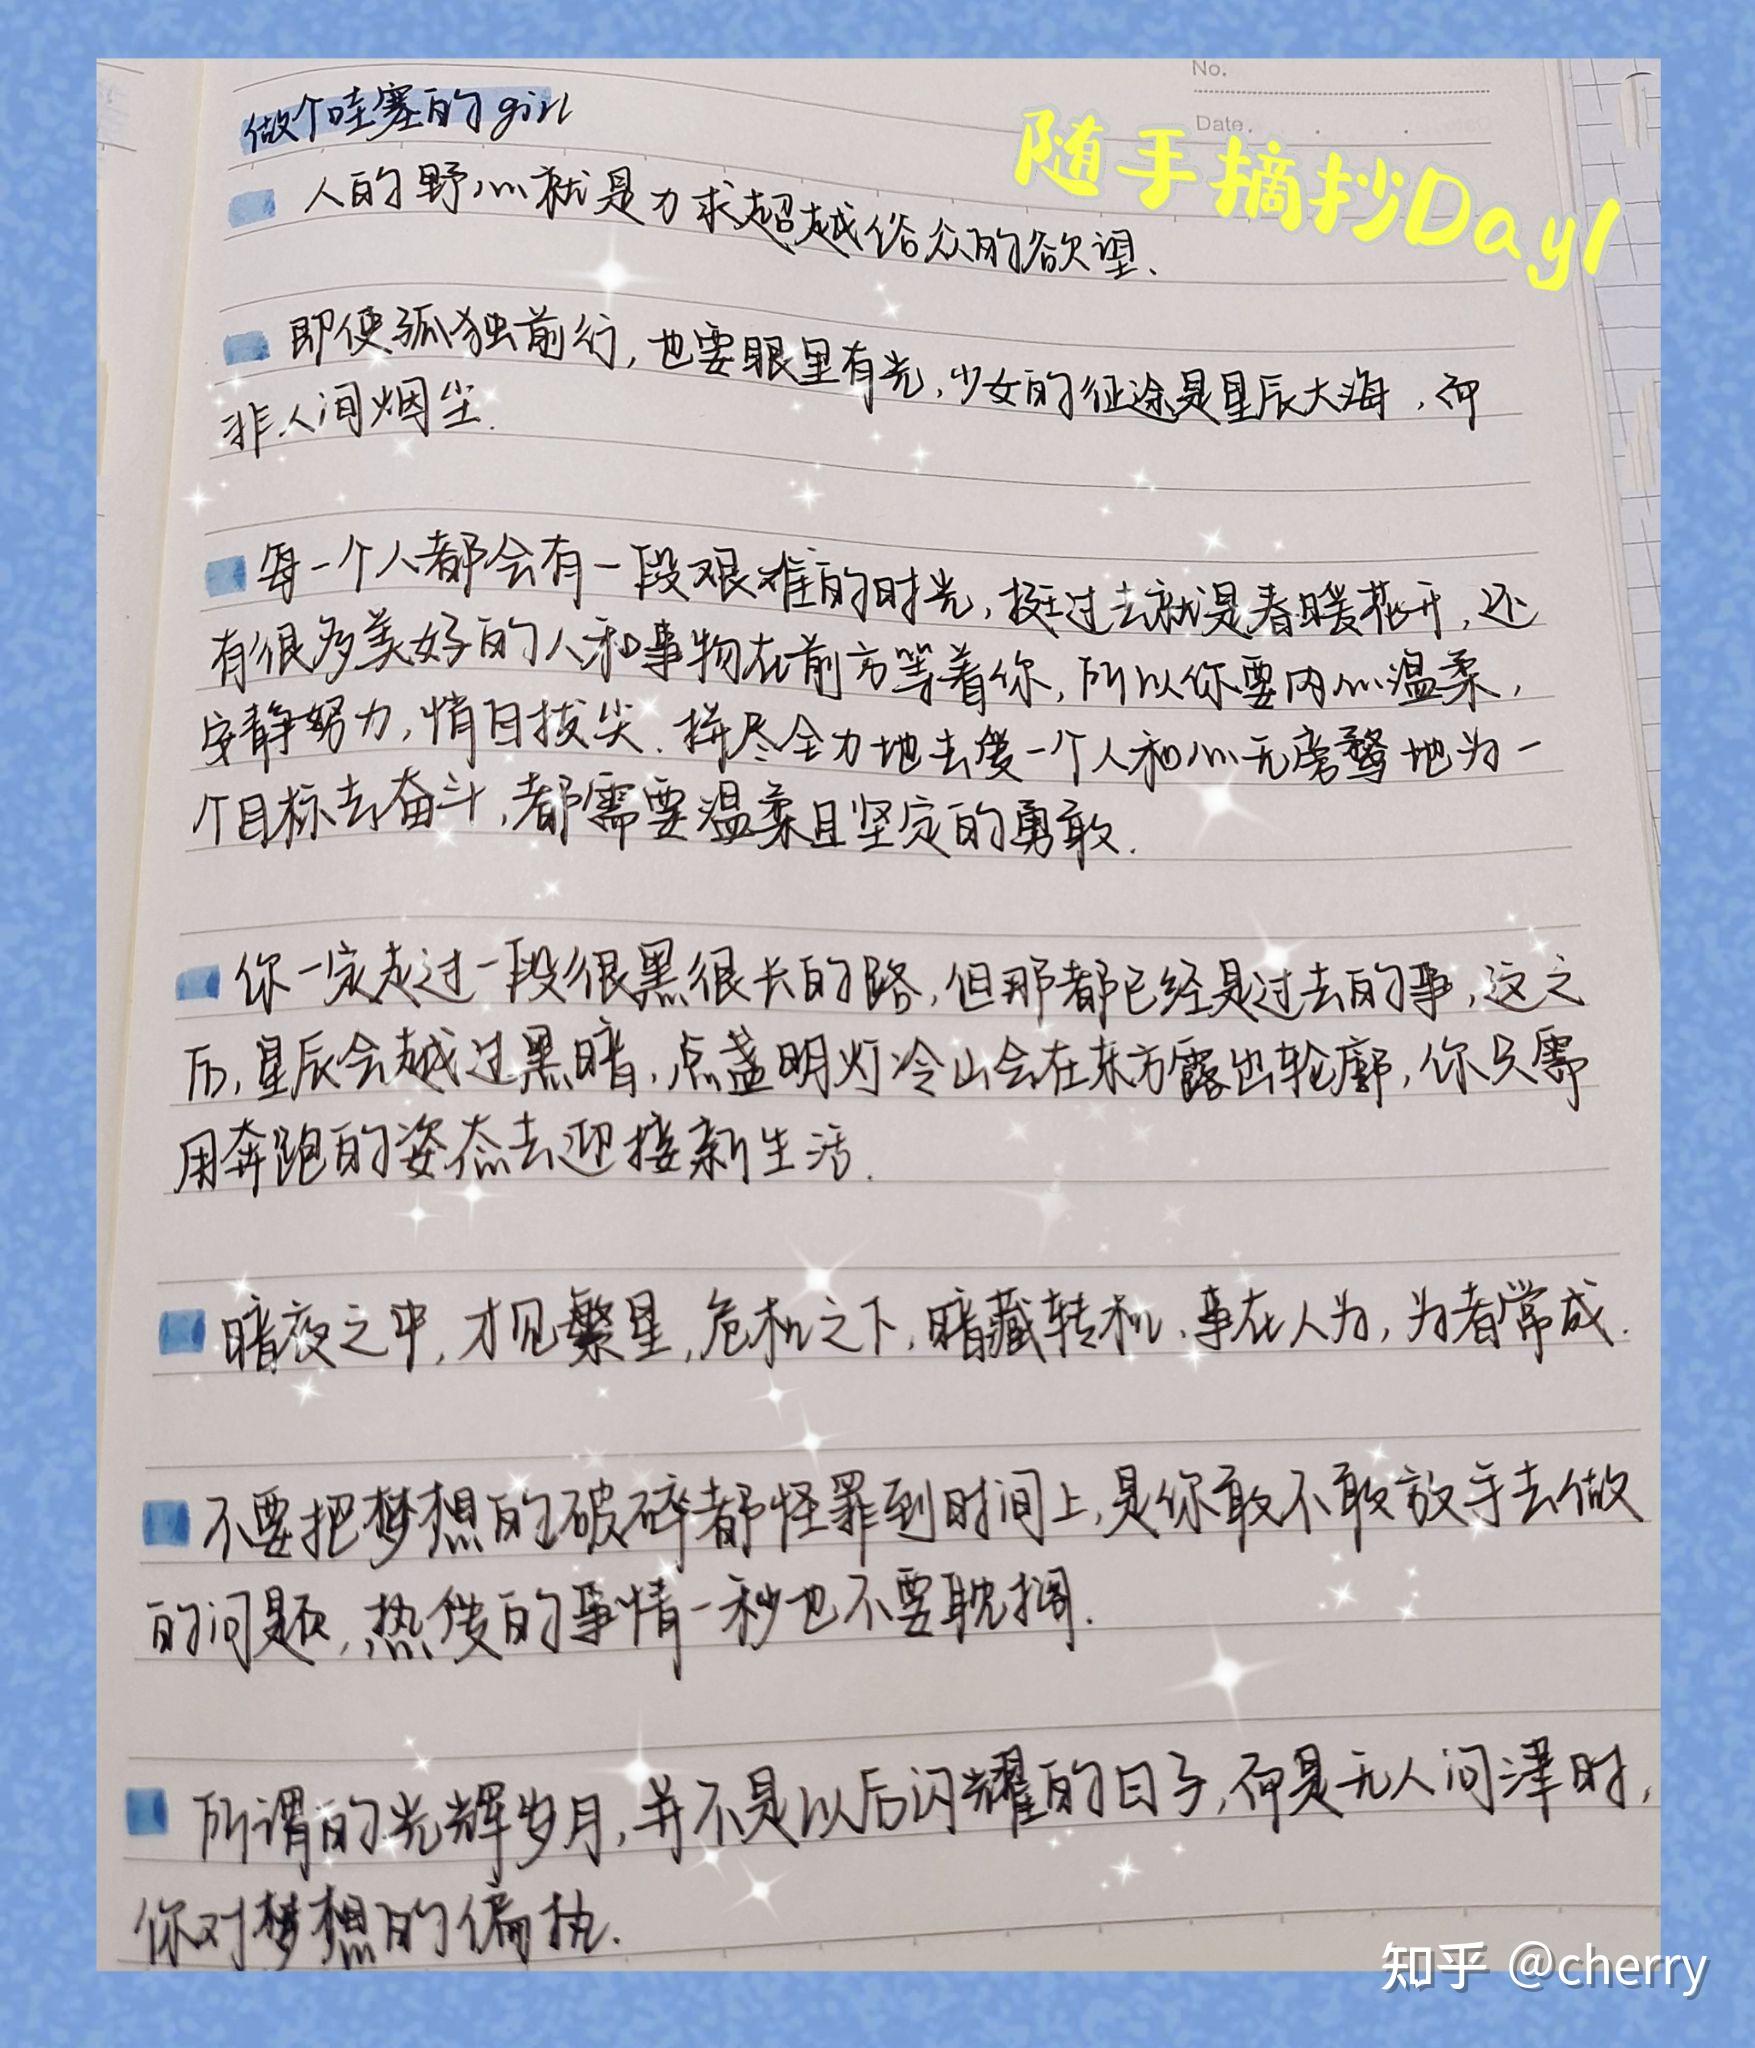 No.
Date.
随手摘抄Day1
做个哇塞的girl
人的野心就是力求超越俗众的欲望.
即使孤独前行,也要眼里有光,少女的征途是星辰大海,而
非人间烟尘.
每一个人都会有一段艰难的时光,挺过去就是春暖花开,还
有很多美好的人和事物在前方等着你,所以你要内心温柔,
安静努力,悄自拔尖.拼尽全力地去爱一个人和心无旁骛地为一
个目标去奋斗,都需要温柔且坚定的勇敢.
你一定走过一段很黑很长的路,但那都已经是过去的事,这之
后,星辰会越过黑暗,点盏明灯冷山会在东方露出轮廓,你只需
用奔跑的姿态去迎接新生活.
暗夜之中,才见繁星,危机之下,暗藏转机,事在人为,为者常成.
不要把梦想的破碎都怪罪到时间上,是你敢不敢放手去做
的问题,热爱的事情一秒也不要耽搁.
所谓的光辉岁月,并不是以后闪耀的日子,而是无人问津时,
你对梦想的偏执.
知乎 @cherry